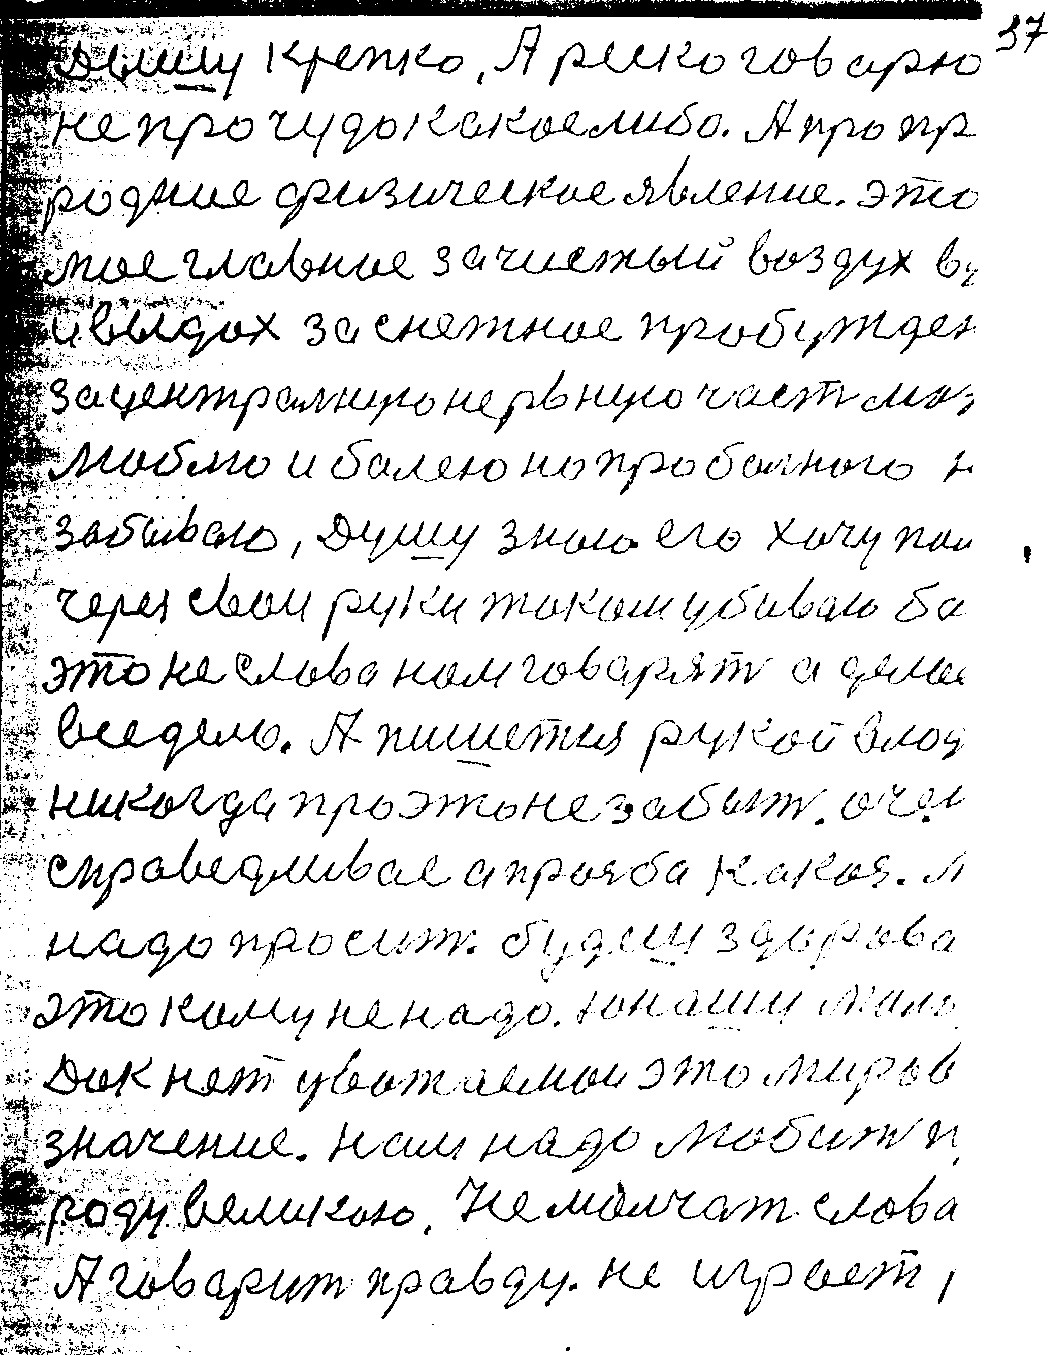 37
Дышу крепко, А реско говарю
не прочудо какоелибо. А про пр
родние физическое явление. это
мое главное зачистый воздух в
ивыдох заснежное пробужден
зацентралнуюнервную част моз
люблю и балею напробалного н
забываю, Душу знаю его хочу пом
через свои руки током убиваю ба
это не слова намговарят а делае
вседело. А пишется рукой влад
никогда проэтонезабыт. очен
справедливае апрозба какоя.
надо просит. будеш здорова
это кому не надо. юнашу мало
Дак нет уважаемои это миров
значение. нам надо любит п
роду великою, Не молчат слова
А говарит правду. не играет,